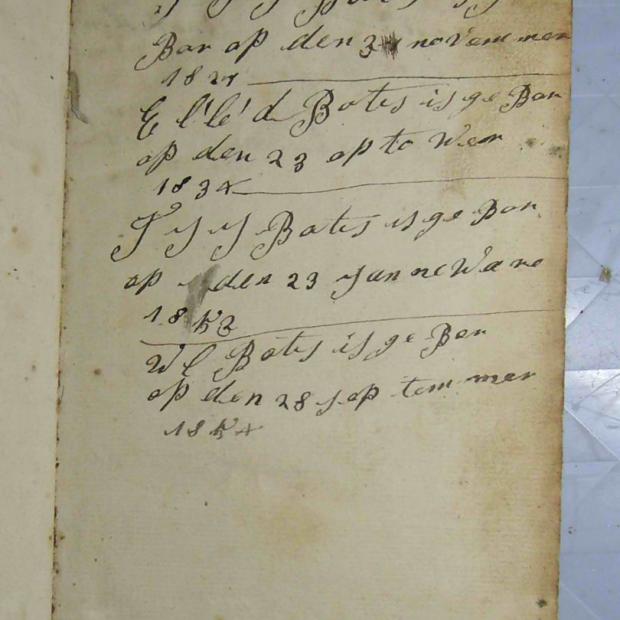 Bar op den 3 novemmer
1827
E l'le' d Botes is ge Bor
op den 23 op to Wer
1834
T J J Botes is ge Bor
op den 23 Jan ne Wa re
1853
W C Botes is ge Bor
op den 28 sep tem mer
1854